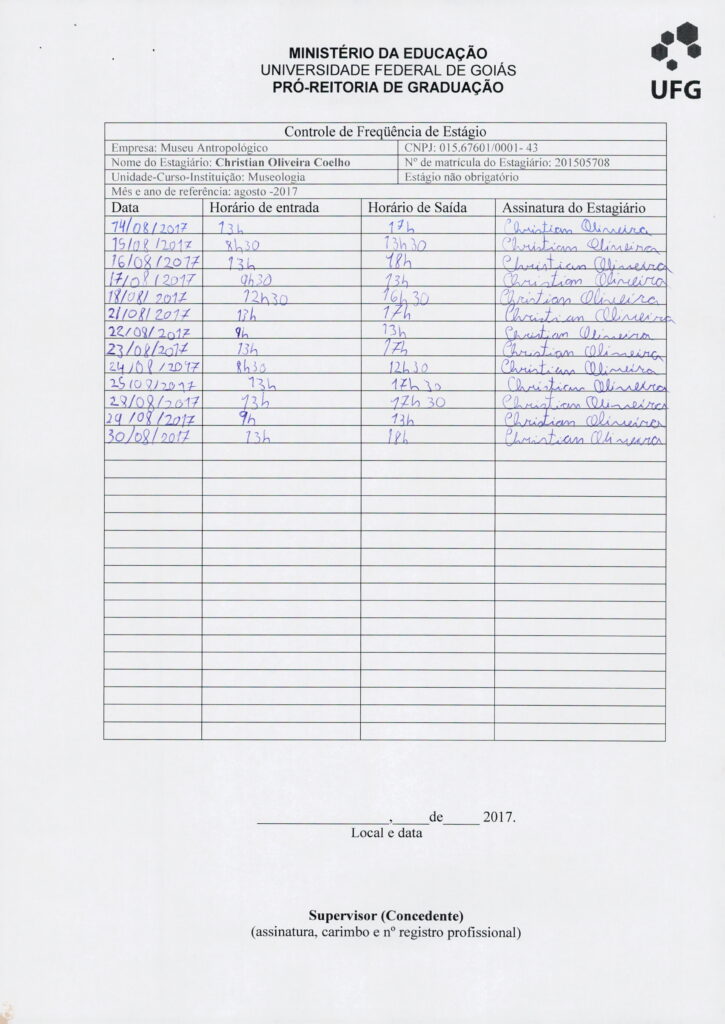 MINISTÉRIO DA EDUCAÇÃO
UNIVERSIDADE FEDERAL DE GOIÁS
PRÓ-REITORIA DE GRADUAÇÃO
UFG
Controle de Freqüência de Estágio
Empresa: Museu Antropológico CNPJ: 015.67601/0001- 43
Nome do Estagiário: Christian Oliveira Coelho Nº de matrícula do Estagiário: 201505708
Unidade-Curso-Instituição: Museologia Estágio não obrigatório
Mês e ano de referência: agosto -2017
Data Horário de entrada Horário de Saída Assinatura do Estagiário
14/08/2017 13h 17h Christian Oliveira
15/08/2017 8h30 13h30 Christian Oliveira
16/08/2017 13h 18h Christian Oliveira
17/08/2017 9h30 13h Christian Oliveira
18/08/2017 12h30 16h30 Christian Oliveira
21/08/2017 13h 17h Christian Oliveira
22/08/2017 9h 13h Christian Oliveira
23/08/2017 13h 17h Christian Oliveira
24/08/2017 8h30 12h30 Christian Oliveira
25/08/2017 13h 17h30 Christian Oliveira
28/08/2017 13h 17h30 Christian Oliveira
29/08/2017 9h 13h Christian Oliveira
30/08/2017 13h 18h Christian Oliveira
___________________,_____de_____ 2017.
Local e data
Supervisor (Concedente)
(assinatura, carimbo e nº registro profissional)